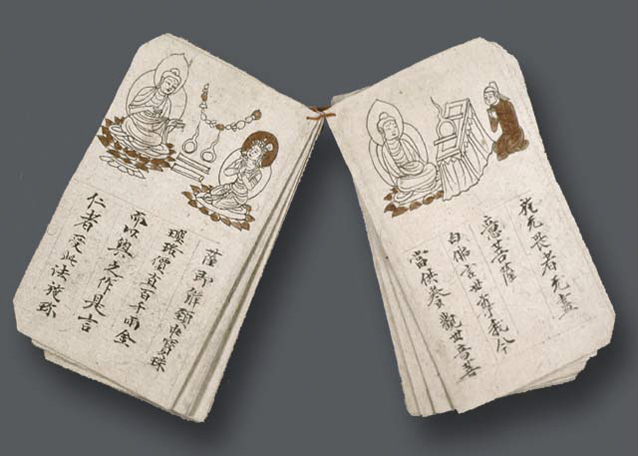 施无畏者无盡
意菩薩
白佛言世尊我今
當供養觀世音菩
薩即解頸衆寶珠
瓔珞價直百千兩金
而以與之作是言
仁者受此法施珎